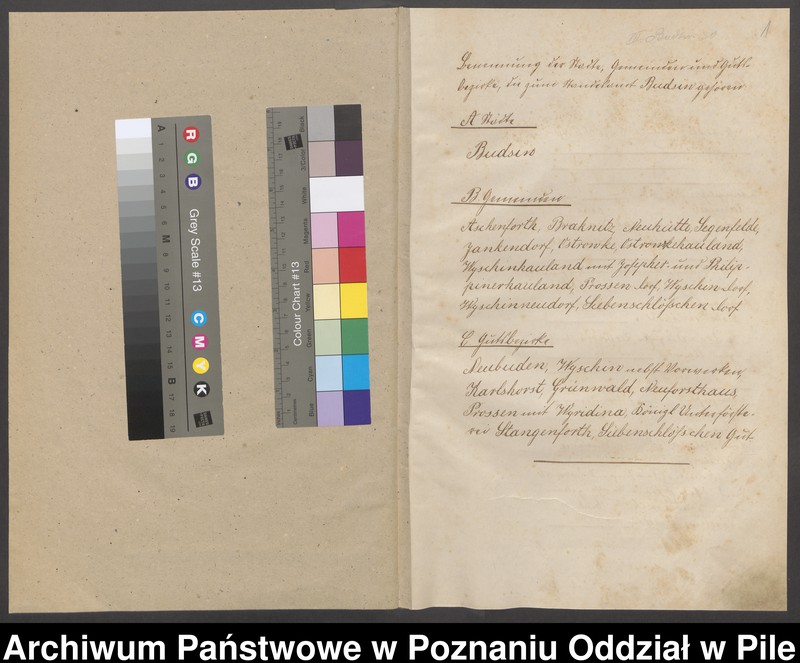 1
Benennung der Städte, Gemeinden und Guts-
bezirke, die zum Standesamt Budsin gehören
A Städte
Budsin
B Gemeinden
Aschenforth, Braknitz, Neuhütte, Segenfelde,
Jankendorf, Ostrowke, Ostrowkehauland,
Wyschinhauland mit Josephet- und Philip-
pinerhauland, Prossen dorf, Wyschen dorf,
Wyschinneudorf, Siebenschlößchen dorf
C Gutsbezirke
Neubuden, Wyschen nebst Vorwerken
Karlshorst, Grünwald, Neuforsthaus,
Prossen mit Königl Unterförste-
rei Stangenforth, Siebenschlößchen Gut
R
G
B
Grey Scale #13
C
M
Y
K
A 1 2 3 4 5 6 M 8 9 10 11 12 13 14 15 B 17 18 19
Colour Chart #13
Blue Cyan Green Yellow Red Magenta White 3/Color Black
Archiwum Państwowe w Poznaniu Oddział w Pile